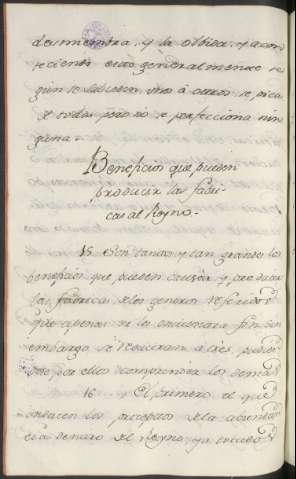 desmiembra, y la olbida, y acon-
teciendo esto generalmente se
gun se suceden unos a otros se pica
de todas pero no se perfecciona nin
guna.
Beneficios que pueden
producir las fabri-
cas al Reyno.
15 Son tantos y tan grandes los
beneficios que pueden causar y producir
las fabricas de los generos referidos
que apenas se les encontrara fin sin
embargo se reduciran a tres pudien
dose por ellos comprender los demas
16 El primero el que
los pueblos de la
dentro del Reyno, ya